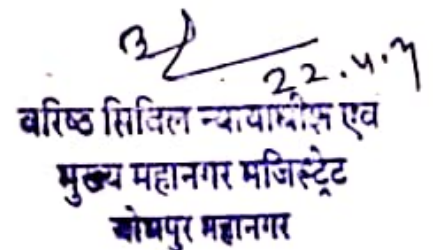 22.4.
वरिष्ठ सिविल न्यायाधीश एवं
मुख्य महानगर मजिस्ट्रेट
जोधपुर महानगर